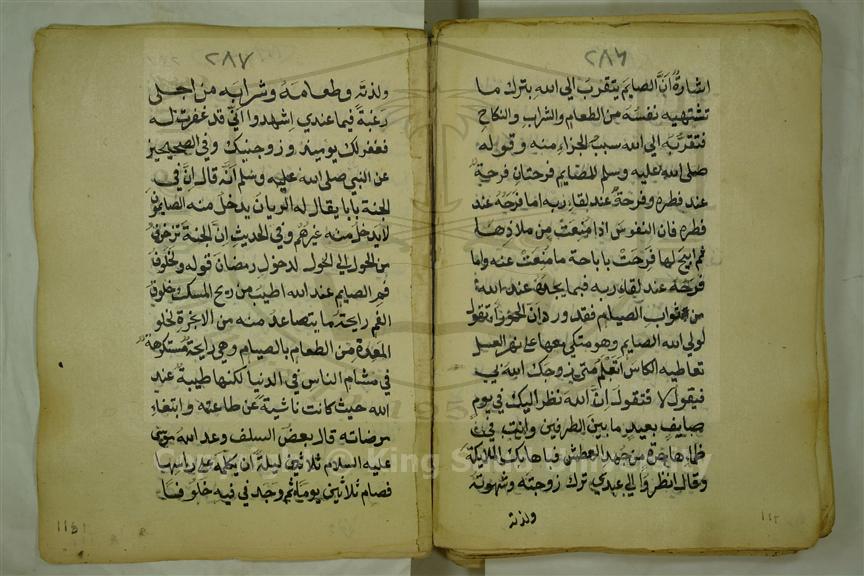 ٢٨٦
اشارة أنّ الصايم يتقرب الى الله بترك ما
تشتهيه نفسه من الطعام والشراب والنكاح
فتقربه الى الله سبب الجزاء منه وقوله
صلى الله عليه وسلم للصايم فرحتان فرحة
عند فطره وفرحة عند لقاء ربه اما فرحه عند
فطره فان النفوس اذا منعت من ملاذها
ثم ابيح لها فرحت باباحة ما منعت عنه واما
فرحه عند لقاء ربه فبما يجده عند الله
من ثواب الصيام فقد ورد ان الحورا تقول
لولي الله الصايم وهو متكي معها على نهر العسل
تعاطيه الكاس اتعلم متى زوجك الله بي
فيقول لا فتقول ان الله نظر اليك في يوم
صايف بعيد ما بين الطرفين وانت في
ظما هاجرة من جهد العطش فباهابك الملايكة
وقال انظروا الى عبدي ترك زوجته وشهوته
ولذته
١١٤
٢٨٧
ولذته وطعامه وشرابه من اجلى
رغبة فيما عندي اشهدوا اني قد غفرت له
فغفر لك يوميذ وزوجنيك وفي الصحيحين
عن النبي صلى الله عليه وسلم أنه قال ان في
الجنة بابا يقال له الريان يدخل منه الصايمون
لا يدخل منه غيرهم وفي الحديث ان الجنة تزخرف
من الحول الى الحول لدخول رمضان قوله ولخلوف
فم الصايم عند الله اطيب من ريح المسك وخلوف
الفم رايحة ما يتصاعد منه من الابخرة لخلو
المعدة من الطعام بالصيام وهي رايحة مستكرهة
في مشام الناس في الدنيا لكنها طيبة عند
الله حيث كانت ناشية عن طاعته وابتغاء
مرضاته قال بعض السلف وعد الله موسى
عليه السلام ثلاثين ليلة ان يكلمه على راسها
فصام ثلاثين يوما ثم وجد في فيه خلوفا
Copyright © King Saud University
1957